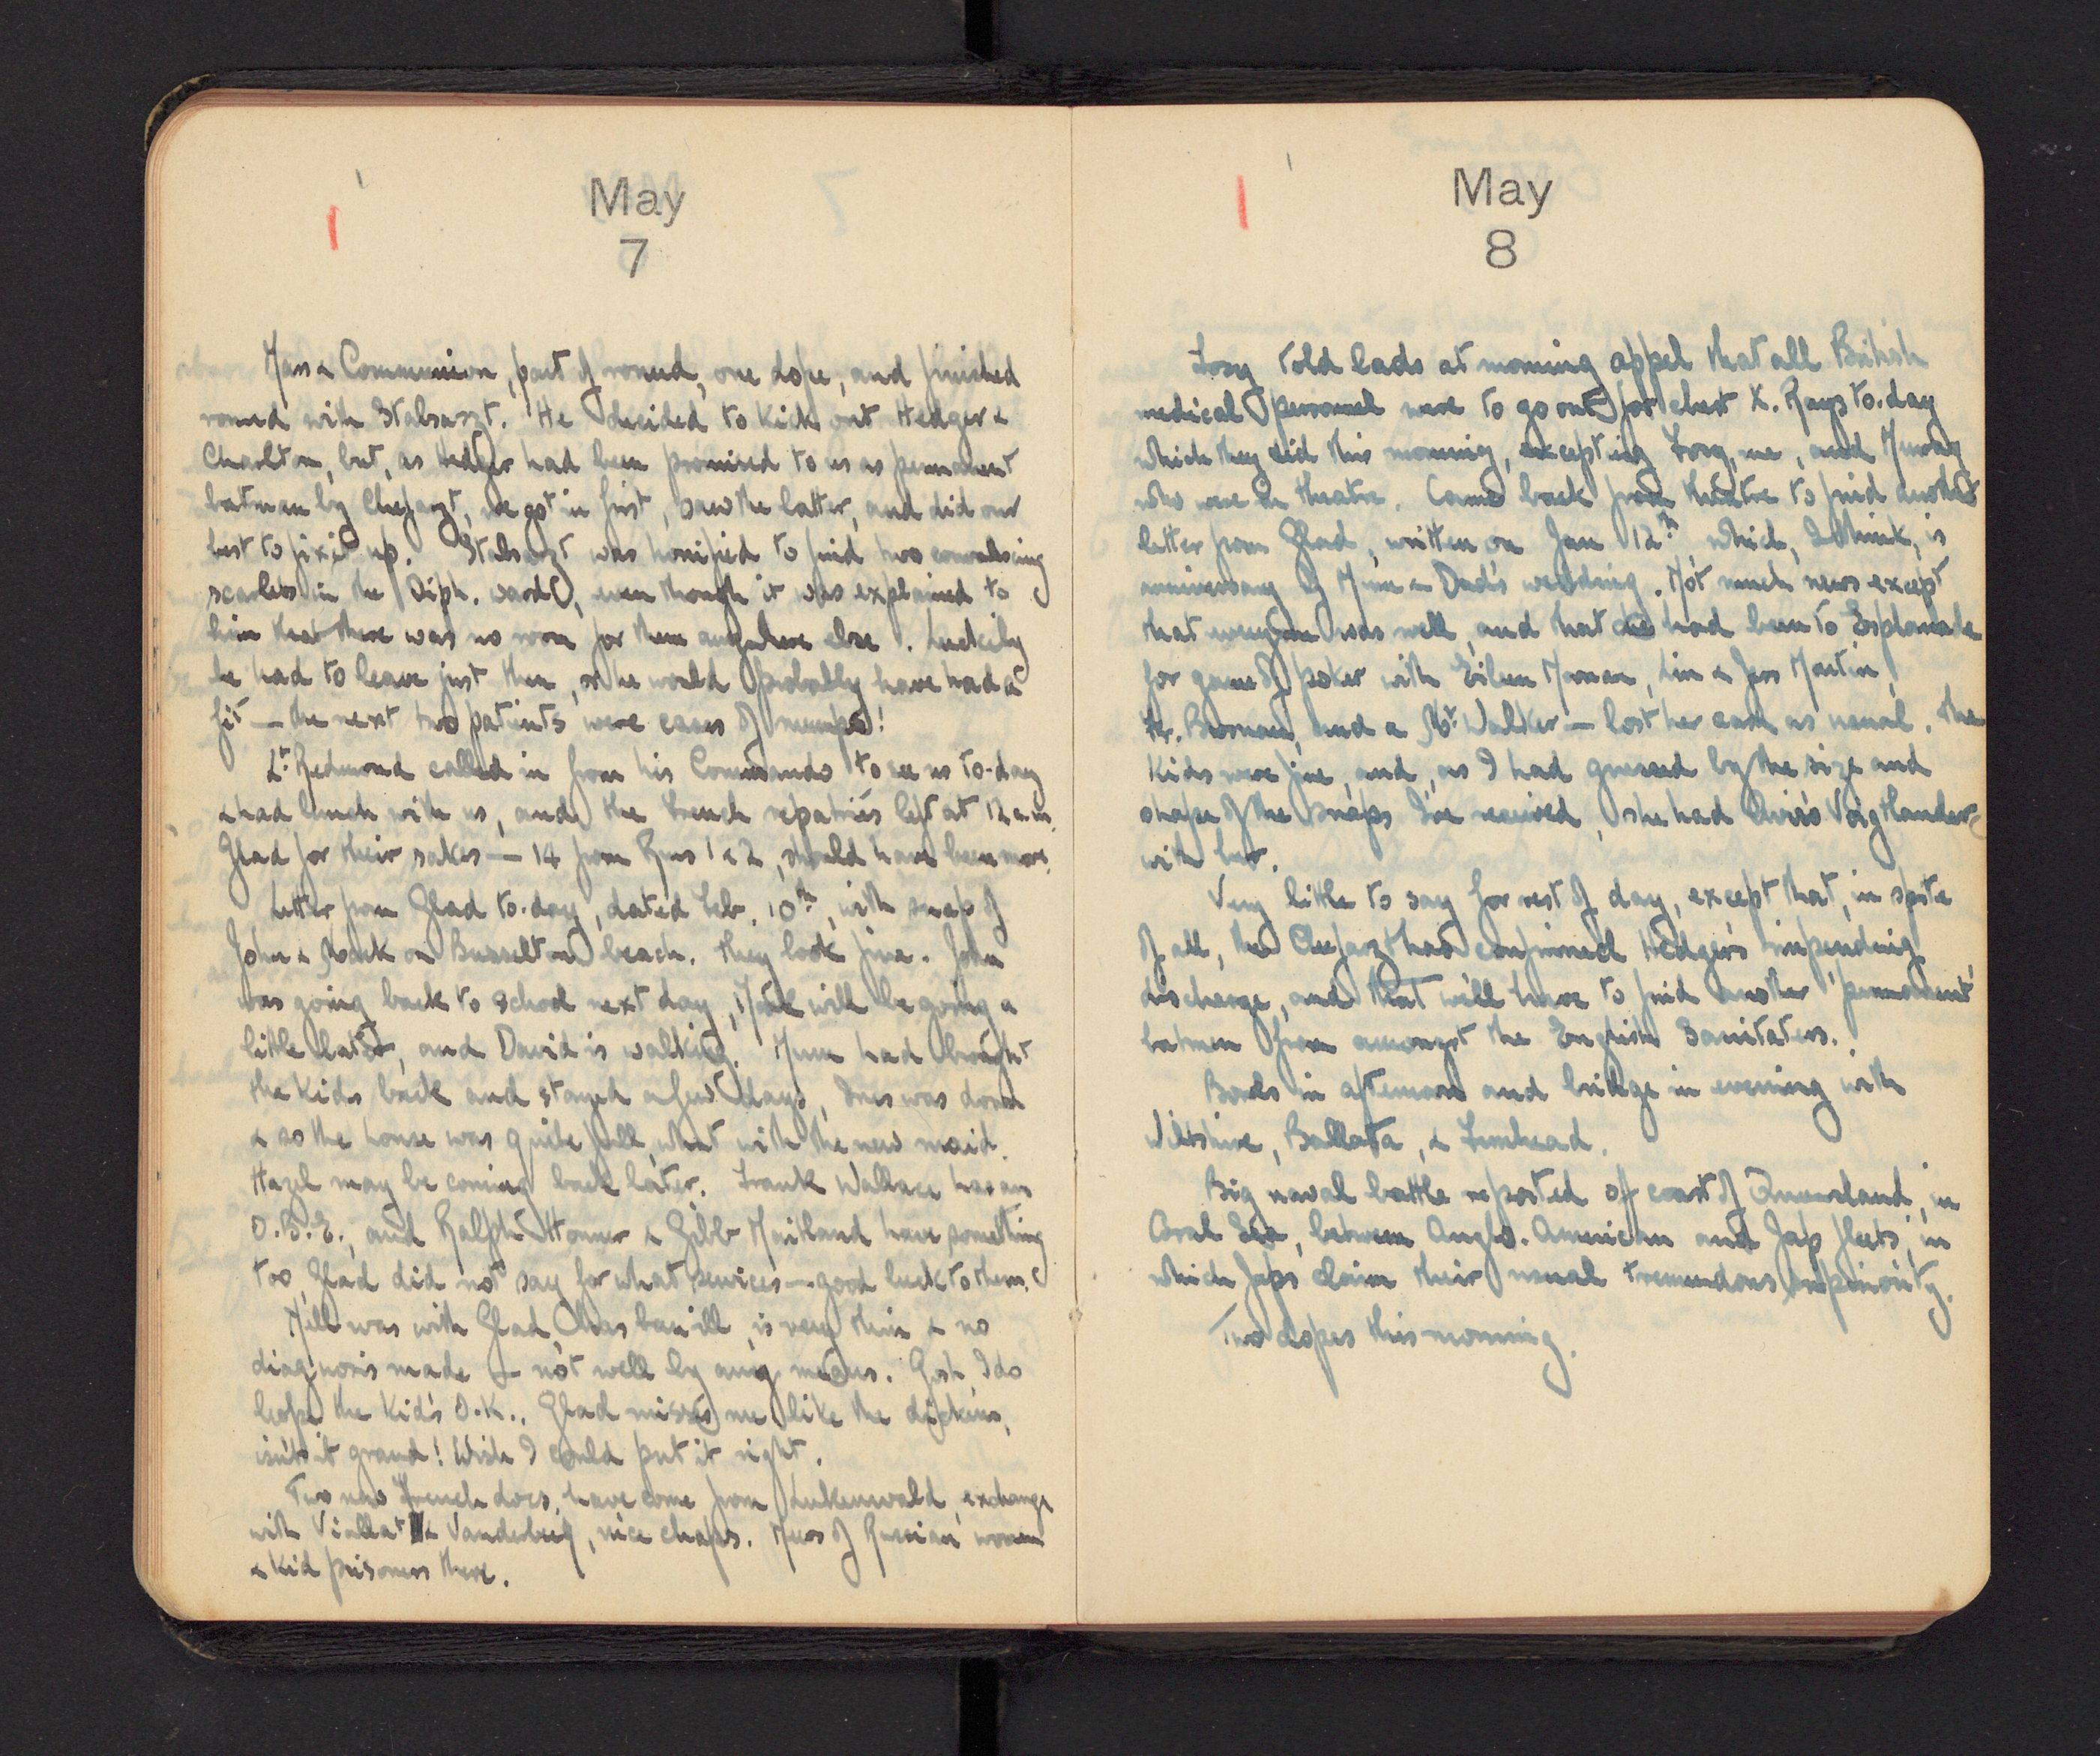 May
7
Mass & Communion, part of round, one dope, and finished
round with Stabsarzt. He decided to kick out Hedger &
Charlton, but, as Hedger had been promised to us as permanent
batman by Chefarzt, we got in first, saw the latter, and did our
best to fix it up. Stabsarzt was horrified to find two convalescing
scarlets in the Diph. ward, even though it was explained to
him that there was no room for them anywhere else. Luckily
he had to leave just then, or he would probably have had a
fit — the next two patients were cases of mumps!
Lt. Redmond called in from his Commando to see us to-day
& had lunch with us, and the French repatriés left at 12 a.m.
Glad for their sakes — 14 from Rms 1 & 2, should have been more.
Letter from Glad to-day, dated Feb. 10th, with snap of
John & Mark on Busselton beach. They look fine. John
was going back to school next day, Mark will be going a
little later, and David is walking. Mum had brought
the kids back and stayed a few days, Ines was down
& so the house was quite full, what with the new maid.
Hazel may be coming back later. Frank Wallace has an
O.B.E., and Ralph Honner & Gibb Maitland have something
too, Glad did not say for what services — good luck to them.
Mill was with Glad, has been ill, is very thin & no
diagnosis made — not well by any means. Gosh, I do
hope the kid's O.K.. Glad misses me like the dickens,
isn't it grand! Wish I could put it right.
Two new French docs. have come from Lukenwald, exchange
with Viallat & Vanderberg, nice chaps. News of Russian women
& kid prisoners there.
May
8
Foxy told lads at morning appel that all British
medical personnel were to go out for chest X. Rays to-day
which they did this morning, excepting Foxy, me, and Murray
who were in theatre. Came back from theatre to find another
letter from Glad, written on Jan 12th, which, I think, is
anniversary of Mum & Dad's wedding. Not much news except
that everyone was well, and that she had been to Esplanade
for game of poker with Eileen Moran, Lin & Jess Martin,
Fr. Brosnan, and a Mr. Walker — lost her cash as usual. The
kids were fine, and, as I had guessed by the size and
shape of the snaps I've received, she had Avis's Voigtlander
with her.
Very little to say for rest of day, except that, in spite
of all, the Chefarzt has confirmed Hedger's impending
discharge, and that we'll have to find another 'permanent'
batman from amongst the English Sanitaters.
Bowls in afternoon and bridge in evening with
Wiltshire, Ballata, & Fimhead.
Big naval battle reported off coast of Queensland, in
Coral Sea, between Anglo-American and Jap fleets, in
which Japs claim their usual tremendous superiority.
Two dopes this morning.